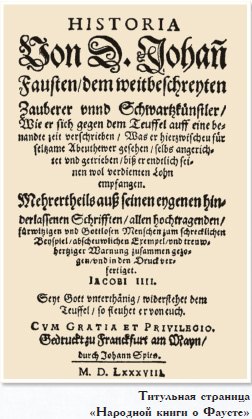 HISTORIA
Von D. Johañ
Fausten/dem weitbeschreyten
Zauberer vnnd Schwartzkünstler/
Wie er sich gegen dem Teuffel auff eine be-
nandte zeit verschrieben/ Was er hierzwischen für
seltzame Abenthewer gesehen/ selbs angerich-
tet vnd getrieben/ biß er endtlich sei-
nen wol verdienten Lohn
empfangen.
Mehrertheils auß seinen eygenen hin-
derlassenen Schrifften/ allen hochtragenden/
fürwitzigen vnd Gottlosen Menschen zum schrecklichen
Beyspiel/ abscheuwlichen Exempel/ vnd treuw-
hertziger Warnung zusammen gezo-
gen/ vnd in den Druck ver-
fertiget.
IACOBI IIII.
Seyt Gott vnterthänig/ widerstehet dem
Teuffel/ so fleuhet er von euch.
CVM GRATIA ET PRIVILEGIO.
Gedruckt zu Franckfurt am Mayn/
durch Johann Spies.
M. D. LXXXVIII.
Титульная страница
«Народной книги о Фаусте»